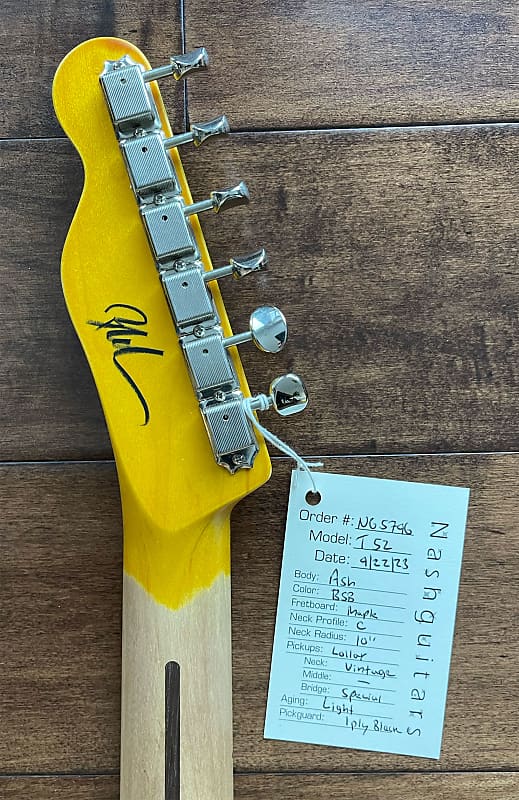 Order #: NG5796
Model: T 52
Date: 9/22/23
Body: Ash
Color: BSB
Fretboard: Maple
Neck Profile: C
Neck Radius: 10"
Pickups: Lollar
Neck: Vintage
Middle: —
Bridge: Special
Aging: Light
Pickguard: 1ply Black
Nashguitars